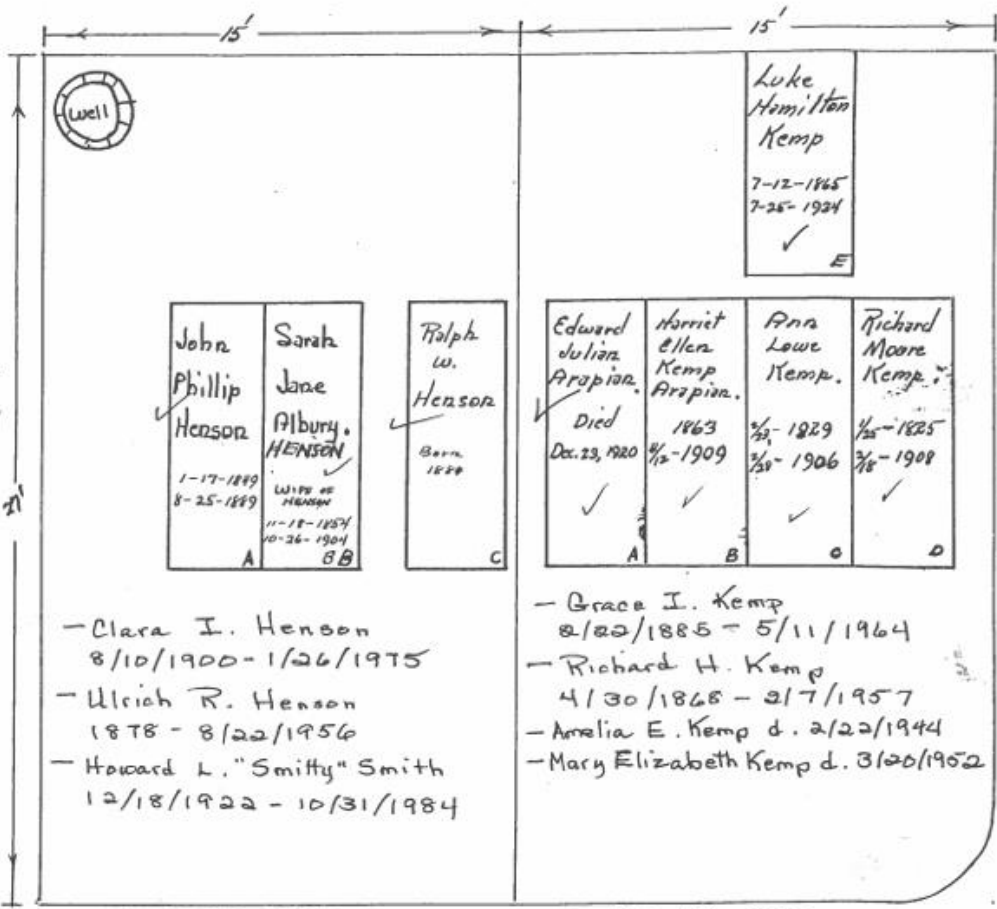 15'
15'
27'
Well
Luke
Hamilton
Kemp
7-12-1865
7-25-1934
E
John
Phillip
Henson
1-17-1849
8-25-1889
A
Sarah
Jane
Albury.
HENSON
WIFE OF
HENSON
11-18-1854
10-26-1904
B
Ralph
W.
Henson
Born
C
Edward
Julian
Arapian.
Died
Dec. 23, 1920
A
Harriet
Ellen
Kemp
Arapian.
1863
1909
B
Ann
Lowe
Kemp.
1829
1906
C
Richard
Moore
Kemp.
1825
1908
D
- Clara I. Henson
8/10/1900 - 1/26/1975
- Ulrich R. Henson
1878 - 8/22/1956
- Howard L. "Smitty" Smith
12/18/1922 - 10/31/1984
- Grace I. Kemp
8/22/1885 - 5/11/1964
- Richard H. Kemp
4/30/1868 - 2/7/1957
- Amelia E. Kemp d. 2/22/1944
- Mary Elizabeth Kemp d. 3/20/1952